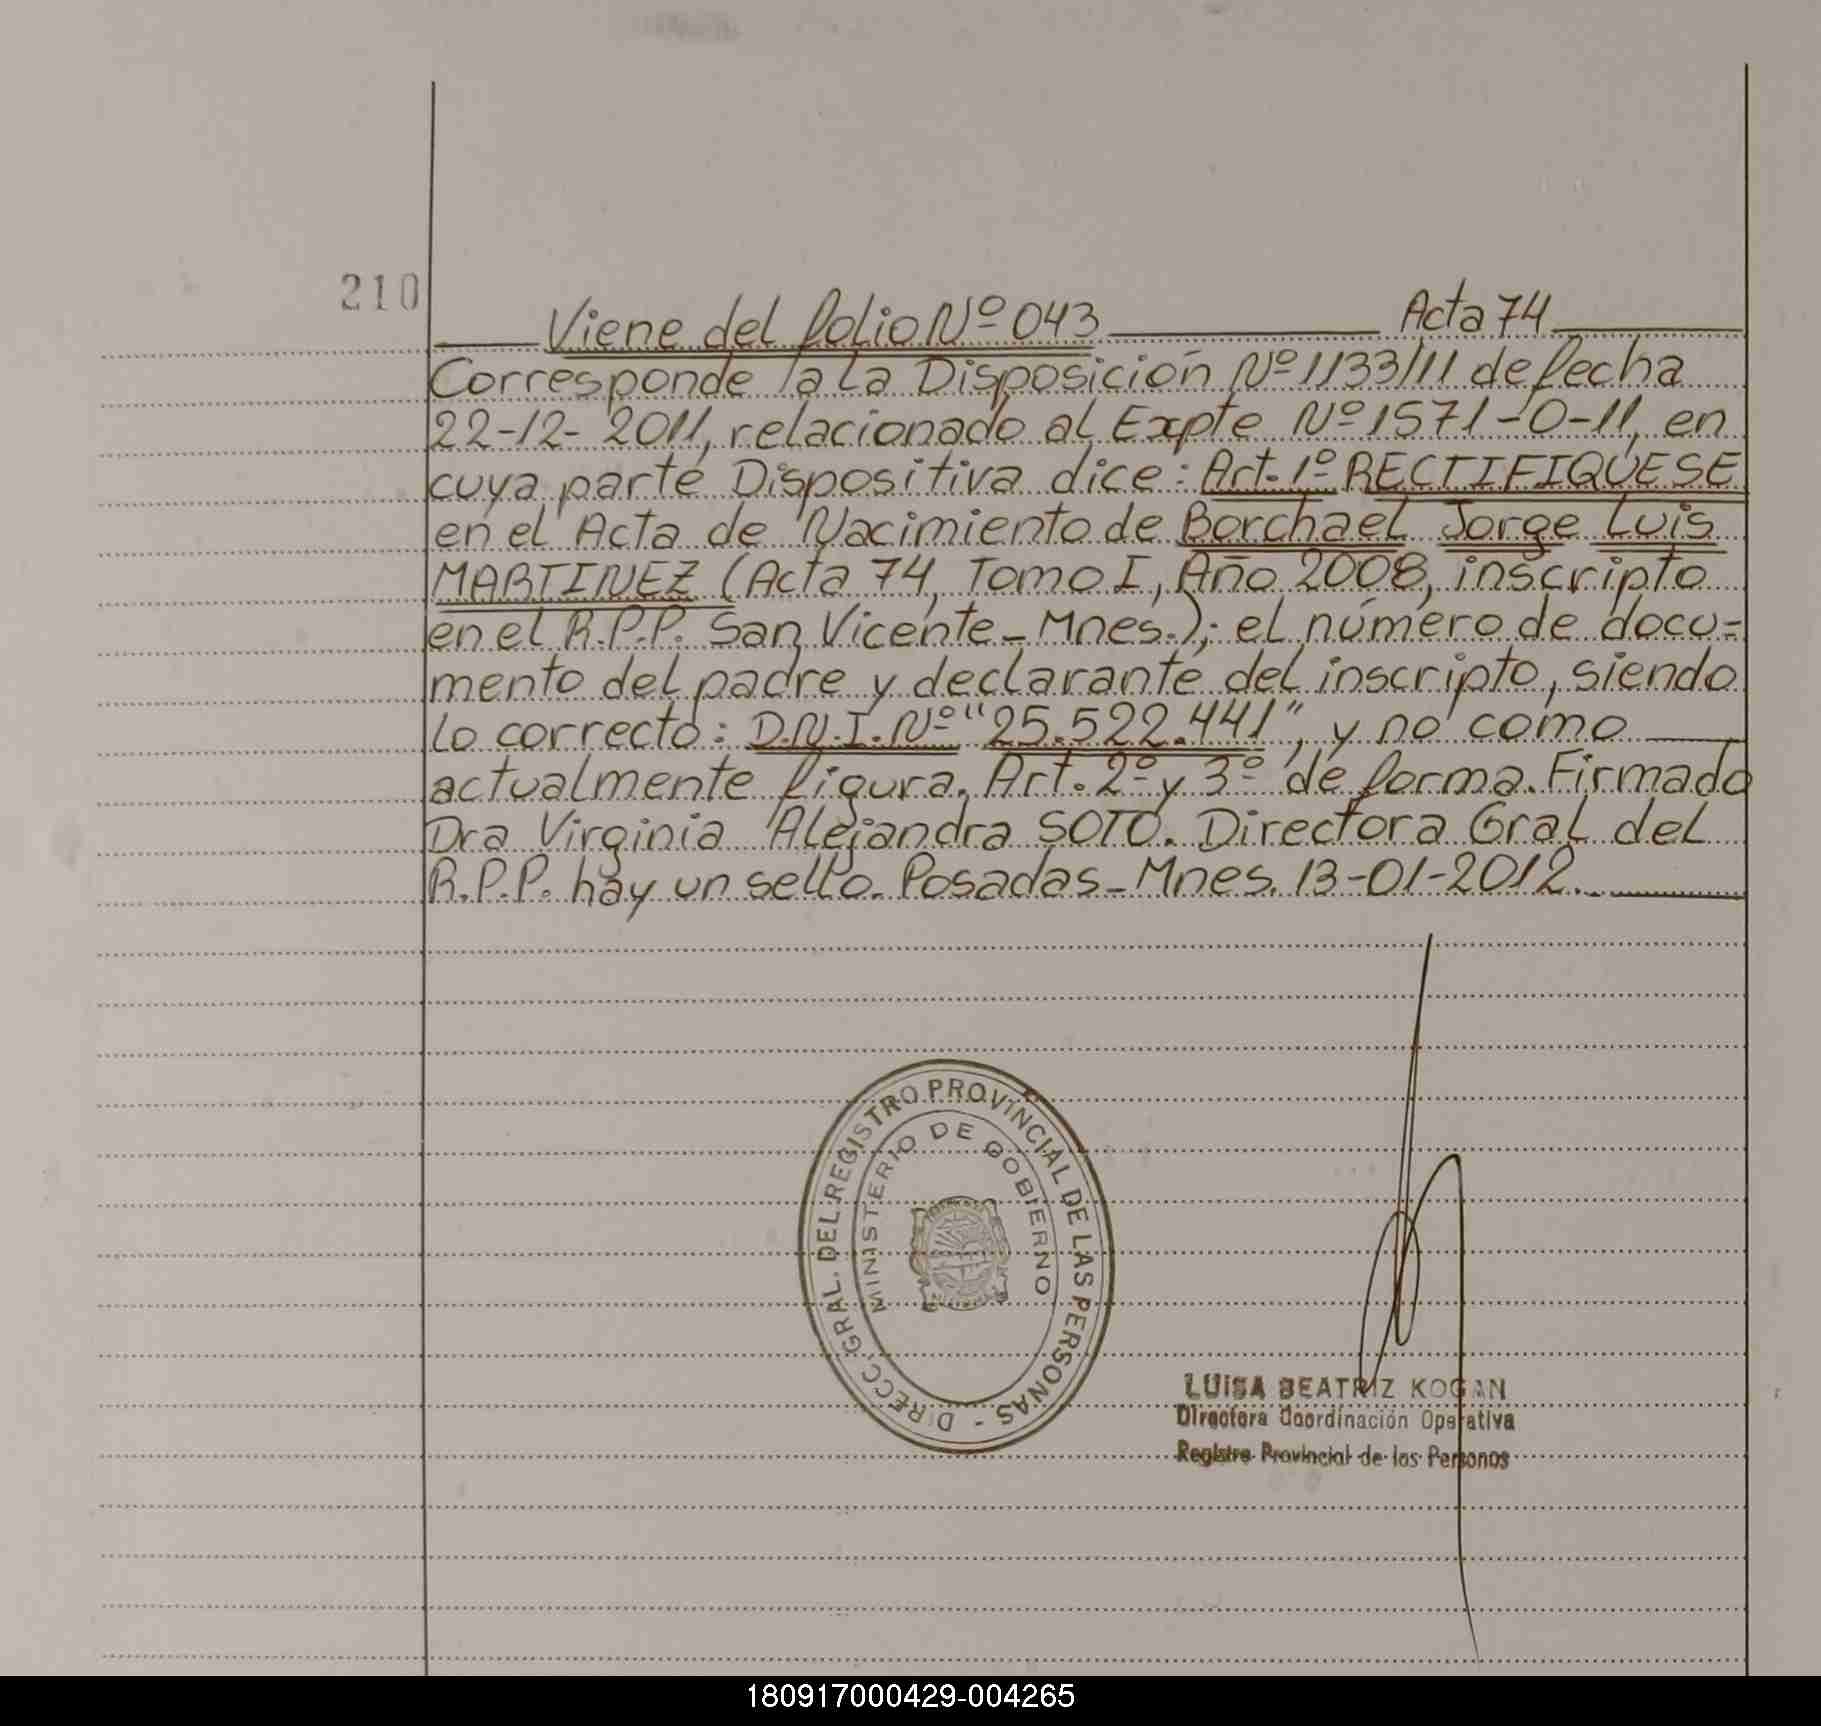 210
Viene del folio Nº 043 Acta 74
Corresponde a la Disposición Nº 1133/11 de fecha
22-12-2011, relacionado al Expte Nº 1571-0-11, en
cuya parte Dispositiva dice: Art. 1º RECTIFIQUESE
en el Acta de Nacimiento de Borchael Jorge Luis
MARTINEZ (Acta 74, Tomo I, Año 2008, inscripto
en el R.P.P. San Vicente-Mnes.); el número de docu=
mento del padre y declarante del inscripto, siendo
lo correcto: D.N.I. Nº "25.522.441", y no como
actualmente figura. Art. 2º y 3º de forma. Firmado
Dra Virginia Alejandra SOTO. Directora Gral del
R.P.P. hay un sello. Posadas-Mnes. 13-01-2012.
DIRECC. GRAL. DEL REGISTRO PROVINCIAL DE LAS PERSONAS -
MINISTERIO DE GOBIERNO
LUISA BEATRIZ KOGAN
Directora Coordinación Operativa
Registro Provincial de las Personas
180917000429-004265